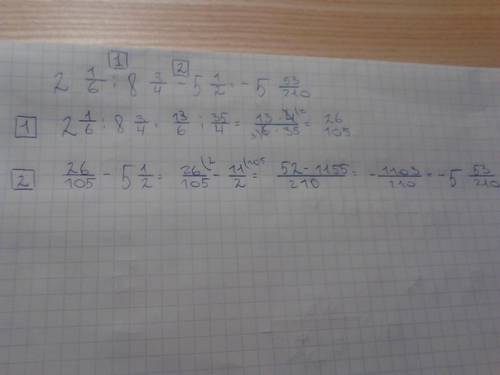 1 2
2 1/6 : 8 3/4 - 5 1/2 = - 5 53/210
1 2 1/6 : 8 3/4 = 13/6 : 35/4 = 13 · 4/6 · 35 = 26/105
2 26/105 - 5 1/2 = 26/105 - 11/2 = 52 - 1155/210 = - 1103/210 = - 5 53/210